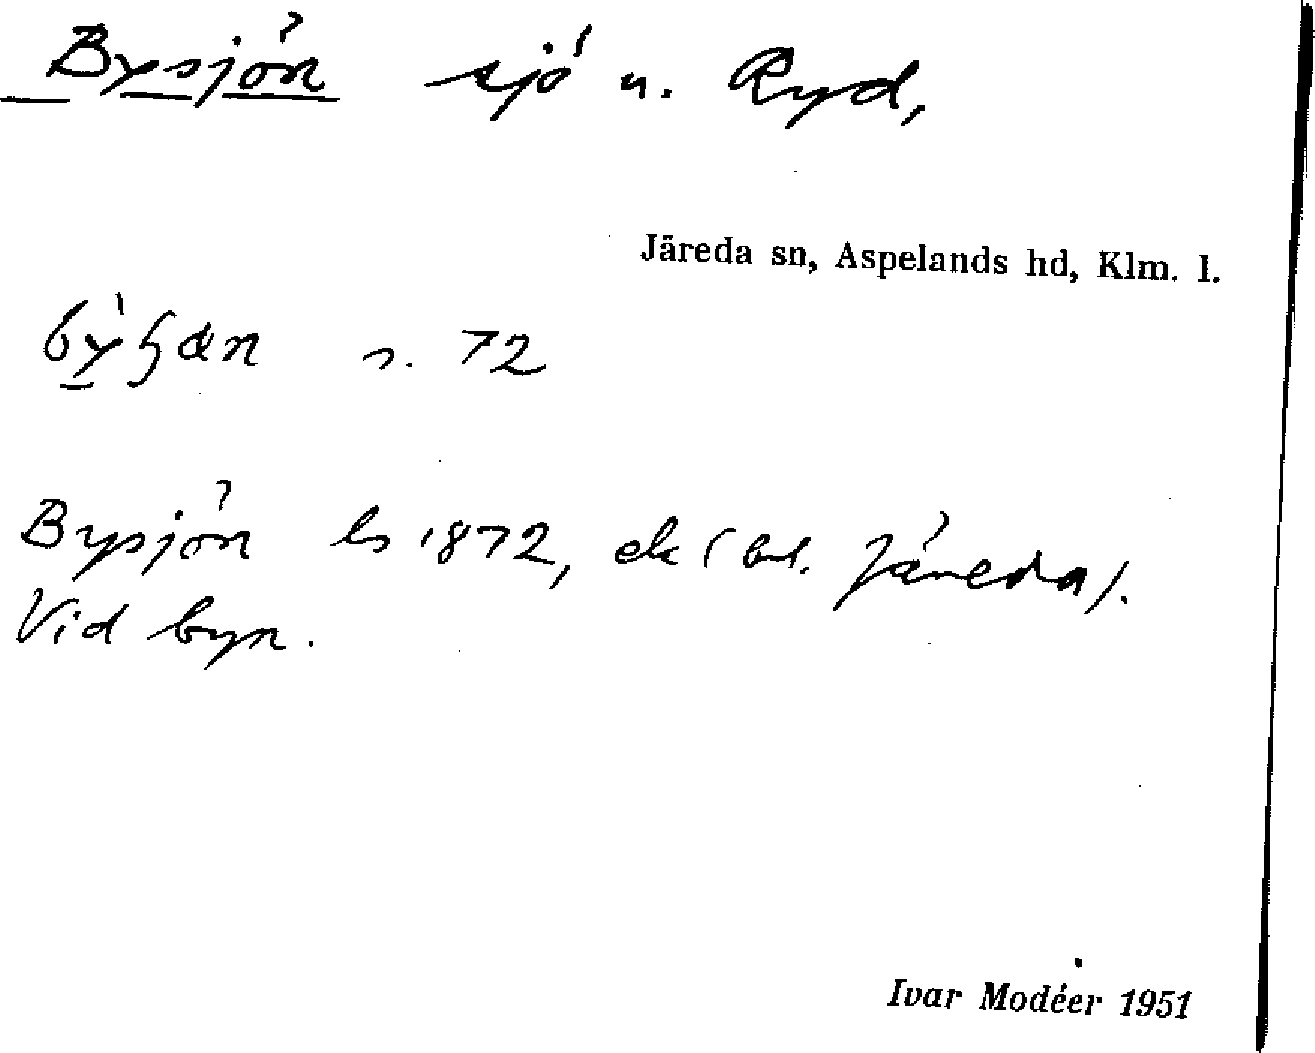 Bysjön sjö u. Ryd,
Järeda sn, Aspelands hd, Klm. l.
s. 72
Bysjön ls 1872, ek (bl. Järeda).
Vid byn.
Ivar Modéer 1951